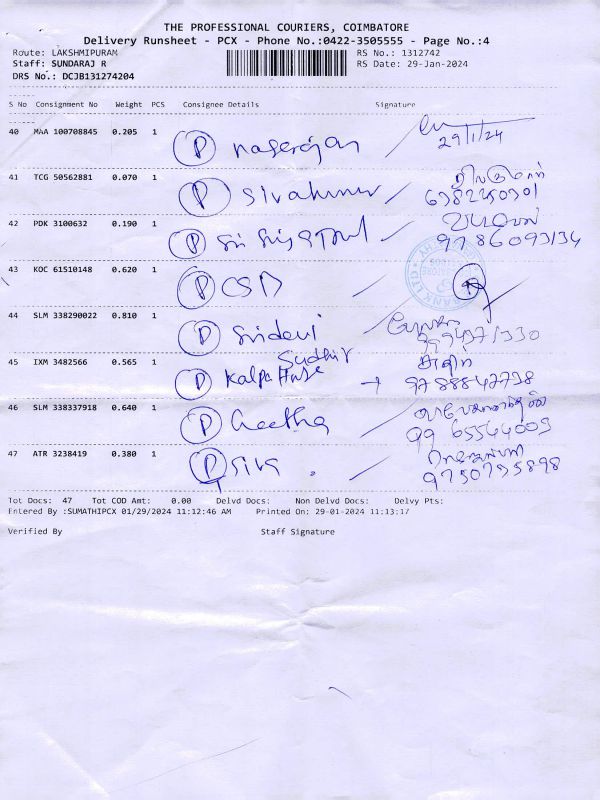 THE PROFESSIONAL COURIERS, COIMBATORE
Delivery Runsheet - PCX - Phone No.:0422-3505555 - Page No.:4
Route: LAKSHMIPURAM RS No.: 1312742
Staff: SUNDARAJ R RS Date: 29-Jan-2024
DRS No.: DCJB131274204
S No Consignment No Weight PCS Consignee Details Signature
40 MAA 100708845 0.205 1
P nagarajan 29/1/24
41 TCG 50562881 0.070 1
P Sivakumar
42 PDK 3100632 0.190 1
P Sri
43 KOC 61510148 0.620 1
P CSD
44 SLM 338290022 0.810 1
P Sridevi
45 IXM 3482566 0.565 1 Sudhir
P Kalpa →
46 SLM 338337918 0.640 1
P Geetha
47 ATR 3238419 0.380 1
P Siva 9750795898
Tot Docs: 47 Tot COD Amt: 0.00 Delvd Docs: Non Delvd Docs: Delvy Pts:
Entered By :SUMATHIPCX 01/29/2024 11:12:46 AM Printed On: 29-01-2024 11:13:17
Verified By Staff Signature